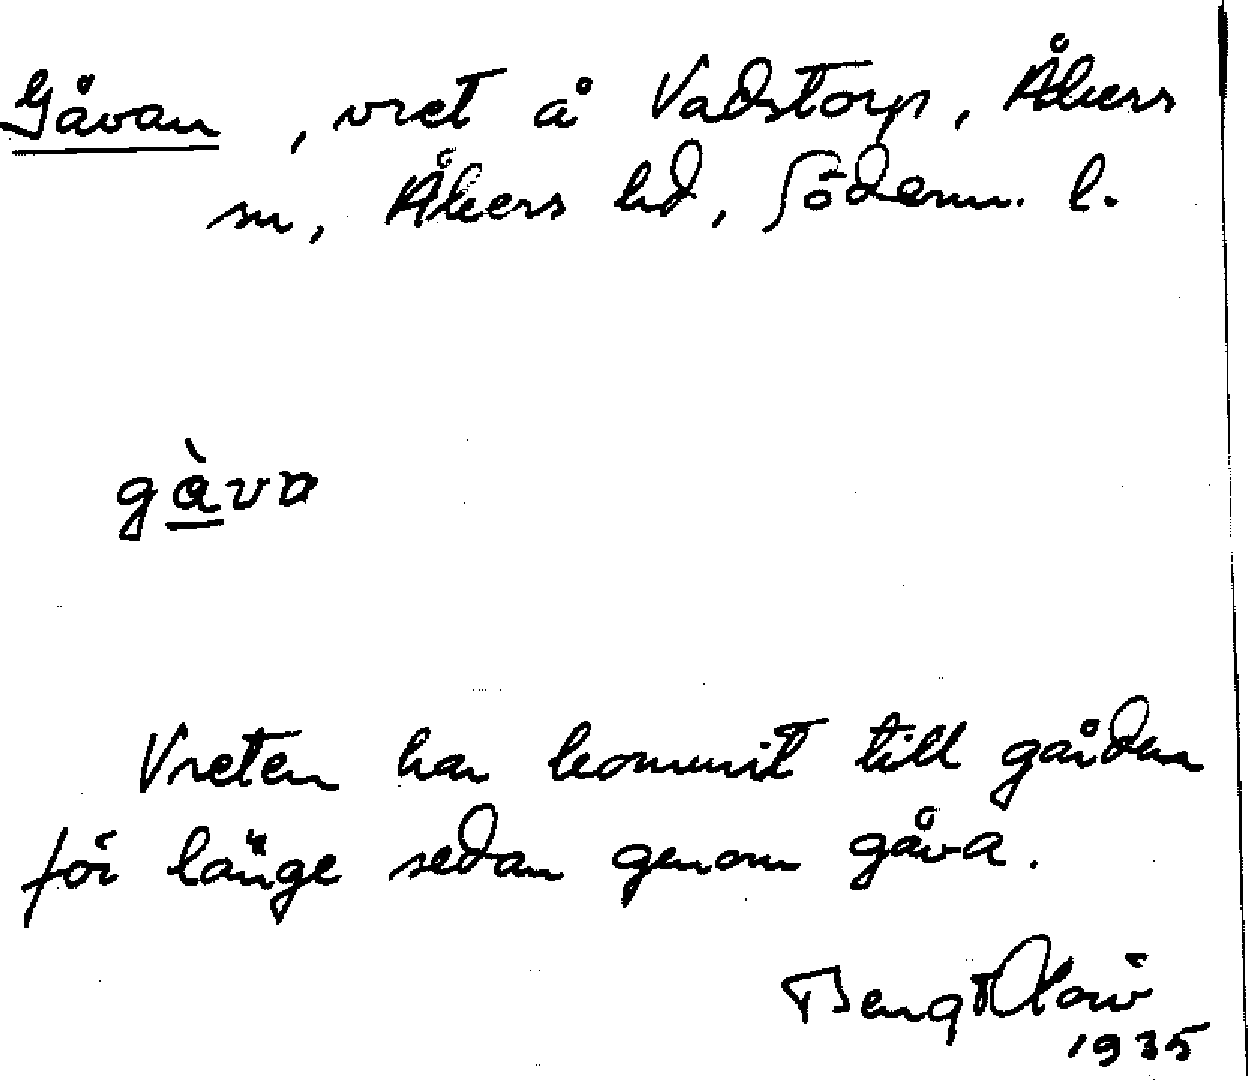 Gåvan, vret å Vadstorp, Åkers
sn, Åkers hd, Söderm. l.
gàva
Vreten har kommit till gården
för länge sedan genom gåva.
Bengt
1935